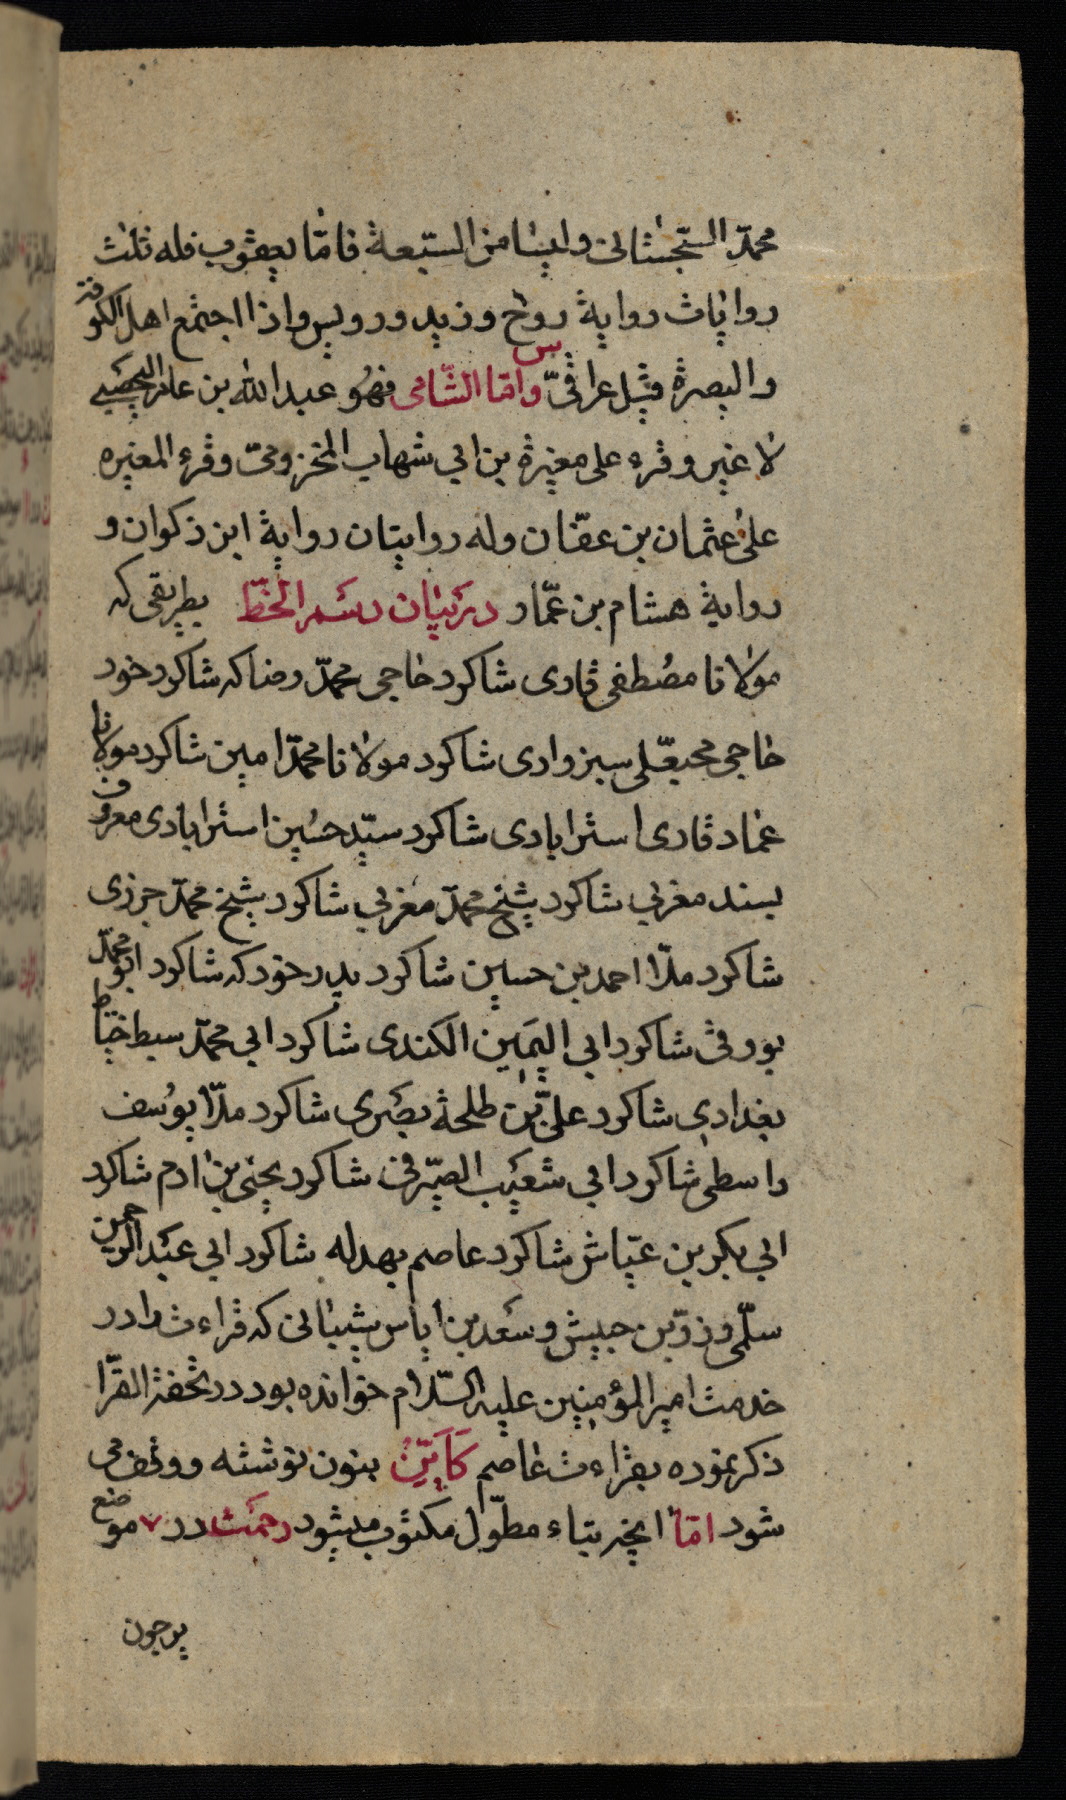 محمّد السّجستانی ولیسا من السّبعة فامّا یعقوب فله ثلث
روایات روایة روح وزید ورویس واذا اجتمع اهل الکوفة
والبصرة قیل عراقیّ وامّا الشّامی فهُو عبدالله بن عامر الیحصبی
لا غیر وقرء علی مغیرة بن ابی شهاب المخزومیّ وقرء المغیره
علی عثمان بن عفّان وله روایتان روایة ابن ذکوان و
روایة هشام بن عمّار در بیان رسم الخطّ بطریقی که
مولانا مصُطفی قاری شاکرد حاجی محمّد رضا که شاکرد خود
حاجی محبعلی سبزواری شاکرد مولانا محمّد امین شاکرد مولانا
عماد قاری استرابادی شاکرد سیّد حسُین استرابادی معروف
بسند مغربی شاکرد شیخ محمّد مغربی شاکرد شیخ محمّد جزری
شاکرد ملّا احمد بن حسین شاکرد پدر خود که شاکرد ابو محمّد
بورقی شاکرد ابی الیَمین الکندی شاکرد ابی محمّد سبط خیّاط
بغدادی شاکرد علیّ بن طلحة بصَری شاکرد ملّا یوُسف
واسطی شاکرد ابی شعَیب الصیّرفی شاکرد یحیی بن ادم شاکرد
ابی بکر بن عیّاش شاکرد عاصم بهدله شاکرد ابی عبَد الرحمن
سلّمی وزرّ بن حبیش وسَعد بن ایاس شیبانی که قراءت را در
خدمت امیر المؤمنین علیه السّلام خوانده بود در تحفة القرّا
ذکر نموده بقراءت عاصم کَاَیِّنْ بنون نوشته ووقف می
شود امّا انچه بتاء مطوّل مکتوب میشود رحمَت در ۷ موضع
یرجون